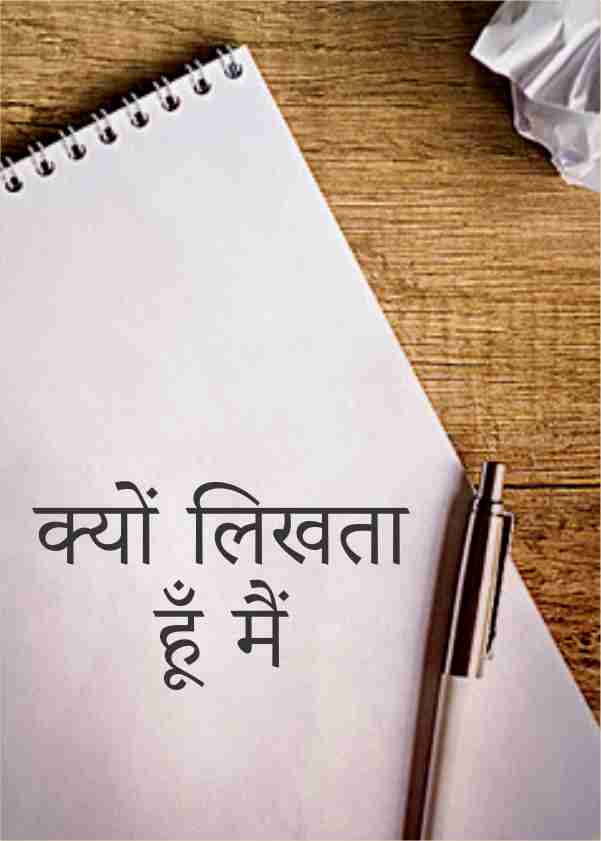 क्यों लिखता
हूँ मैं